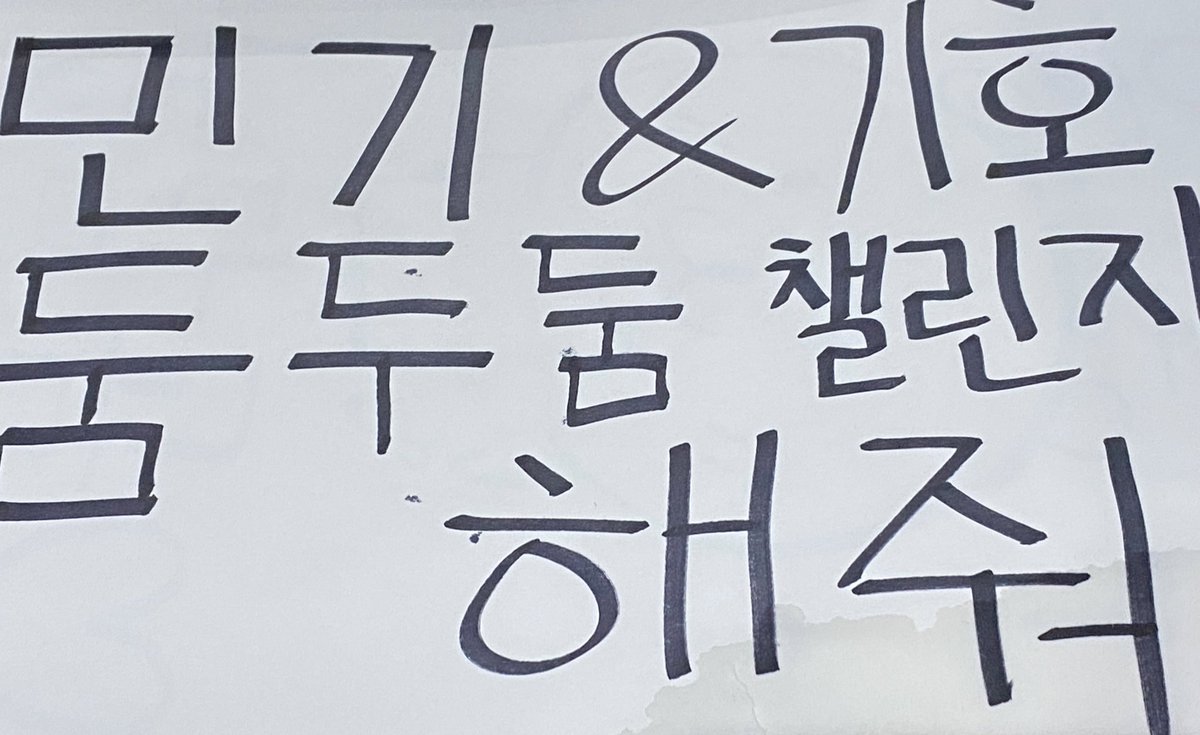 민기 & 기호
둠두둠 챌린지
해줘